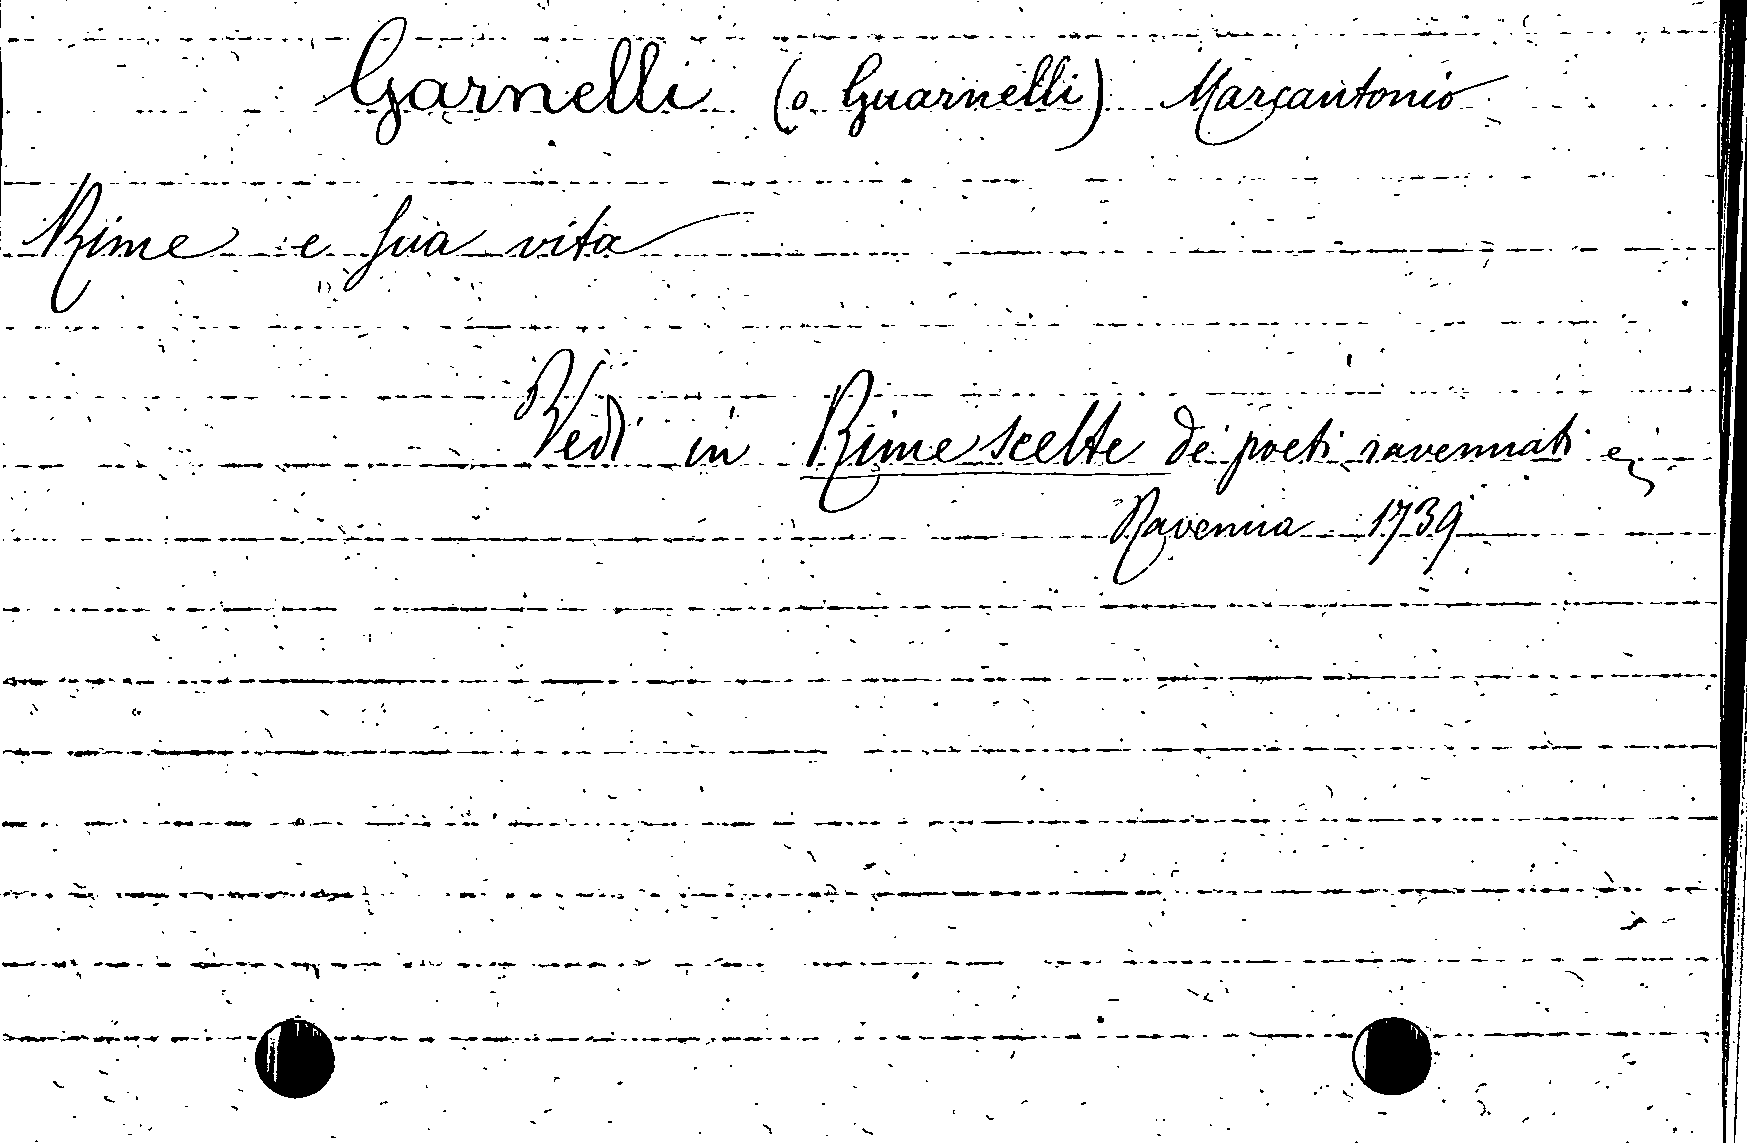 Garnelli (o Guarnelli) Marcantonio
Rime e sua vita
Vedi in Rime scelte de' poeti ravennati
Ravenna 1739